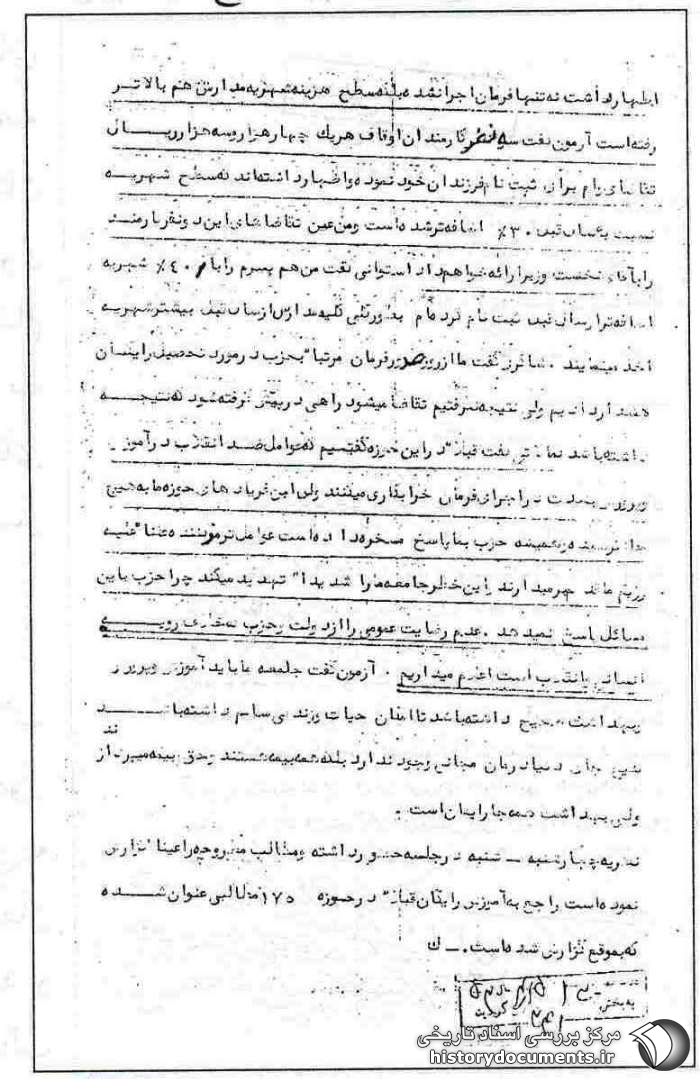 اظهار داشت نه تنها فرمان اجرا نشده بلکه سطح هزینه شهریه مدارس هم بالاتر
رفته است آزمون گفت سه نفر کارمندان اوقاف هریک چهار هزار و سه هزار ریال
تقاضای وام برای ثبت نام فرزندان خود نموده و اظهار داشته‌اند که سطح شهریه
نسبت به سال قبل ۳۰٪ اضافه‌تر شده است و من عین تقاضاهای این دو نفر کارمند
را به آقای نخست وزیر ارائه خواهم داد استوانی گفت من هم پسرم را با ۴۰٪ شهریه
اضافه‌تر از سال قبل ثبت نام کرده‌ام بطور کلی کلیه مدارس از سال قبل بیشتر شهریه
اخذ مینمایند. گفت ما از روز صدور فرمان مرتبا" به حزب در مورد تحصیل رایگان
هشدار دادیم ولی نتیجه نگرفتیم تقاضا میشود راهی در پیش گرفته شود که نتیجه
داشته باشد گفت قبلا" در این حوزه گفتیم که عوامل ضد انقلاب در آموزش و
پرورش بشدت در اجرای فرمان خرابکاری میکنند ولی این فریادهای حوزه ما به هیچ
جا نرسیده و همیشه حزب بما پاسخ مسخره داده است عوامل ترمز کننده علنا" علیه
رژیم ما گام برمیدارند و این خطر جامعه ما را شدیدا" تهدید میکند چرا حزب باین
مسائل پاسخ نمیدهد. عدم رضایت عمومی را از دولت و حزب
انسانی یا انقلاب است اعلام میداریم. آزمون گفت جامعه ما باید آموزش و پرورش و
بهداشت صحیح داشته باشد تا امکان حیات و زندگی سالم داشته باشد
هیچ جای دنیا درمان مجانی وجود ندارد بلکه همه بیمه هستند و حق بیمه میپردازند
ولی بهداشت همه جا رایگان است.
نظریه چهارشنبه ـ شنبه در جلسه حضور داشته و مطالب مطروحه را عینا" گزارش
نموده است راجع به آموزش رایگان قبلا" در حوزه ۱۷۵ مطالبی عنوان شده
که بموقع گزارش شده است. ـ ك
به بخش
مرکز بررسی اسناد تاریخی
historydocuments.ir